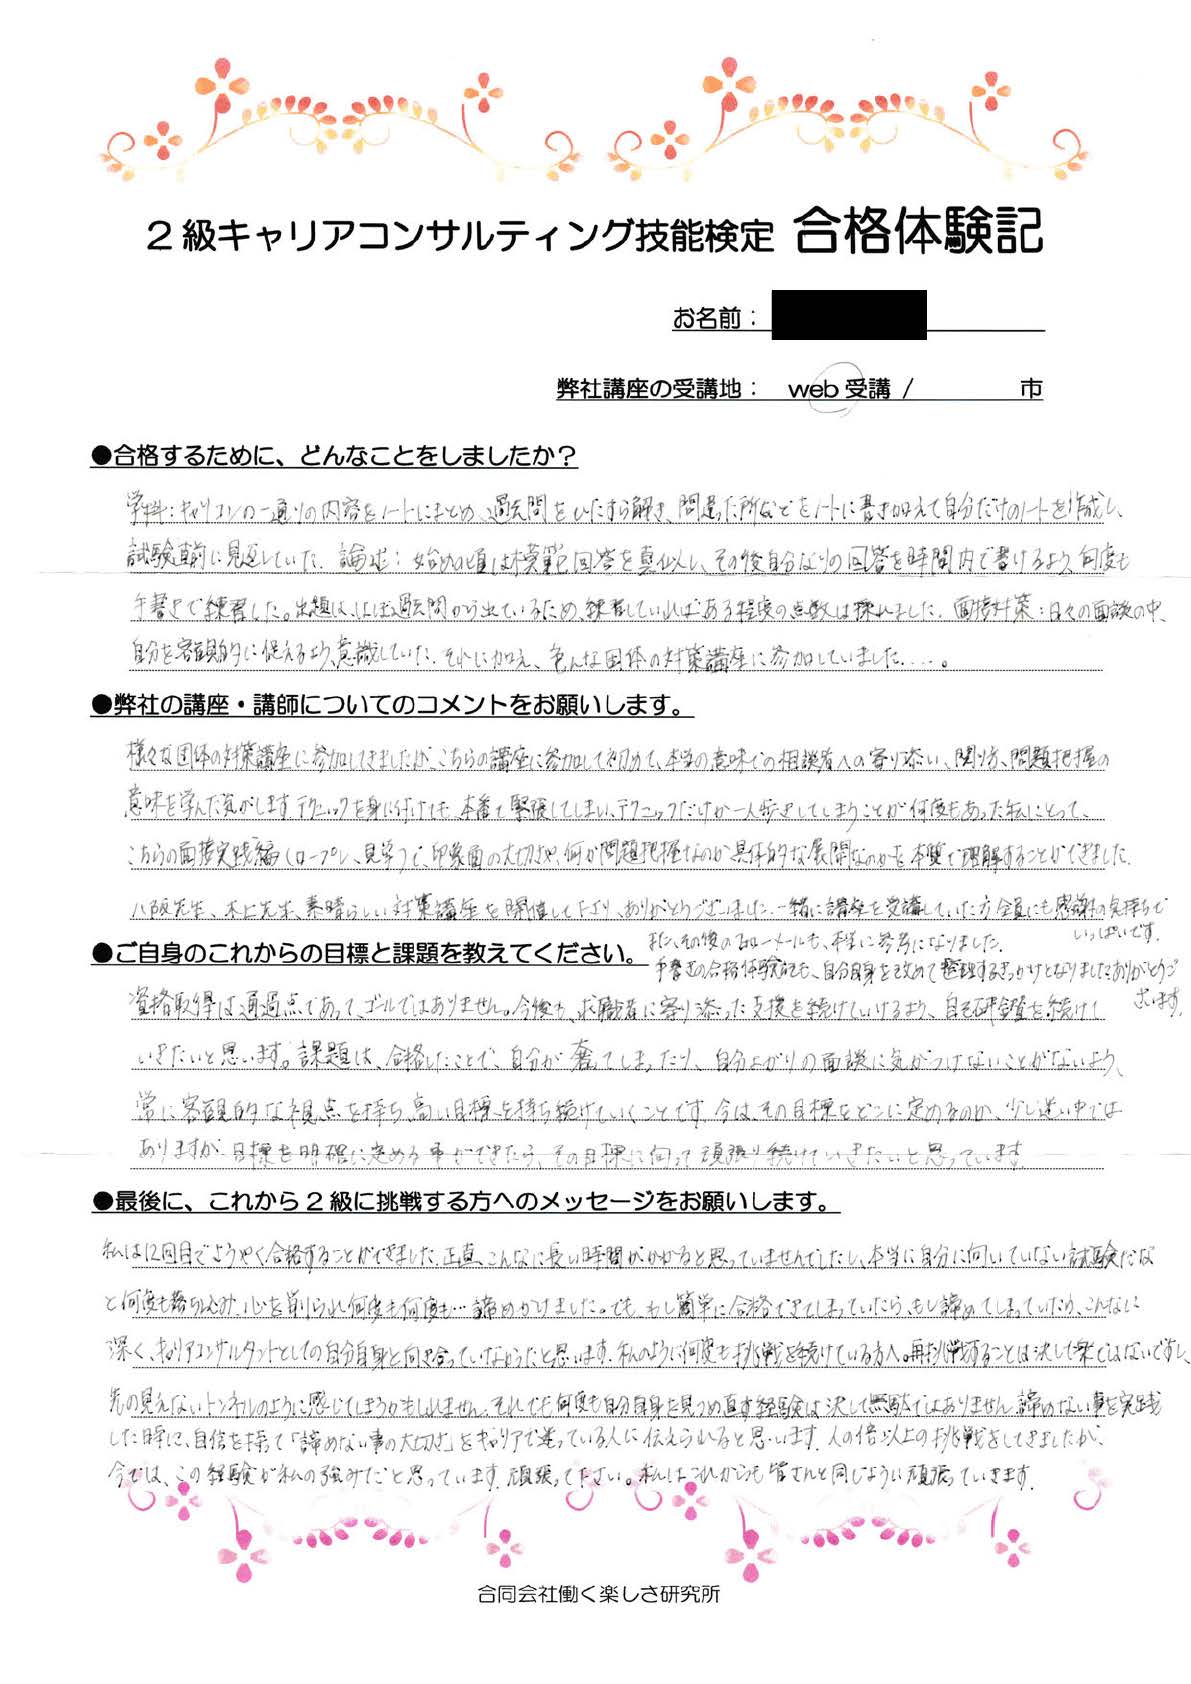 2級キャリアコンサルティング技能検定 合格体験記
お名前：
弊社講座の受講地： web 受講 / 市
●合格するために、どんなことをしましたか？
学科：キャリコンの一通りの内容をノートにまとめ、過去問をひたすら解き、間違った所などをノートに書き加えて自分だけのノートを作成し、
試験直前に見返していた。論述：始めの頃は模範回答を真似し、その後自分なりの回答を時間内で書けるよう、何度も
手書きで練習した。出題は、ほぼ過去問から出ているため、練習していればある程度の点数は採れました。面接対策：日々の面談の中、
自分を客観的に捉えるよう、意識していた。それに加え、色んな団体の対策講座に参加していました....。
●弊社の講座・講師についてのコメントをお願いします。
様々な団体の対策講座に参加してきましたが、こちらの講座に参加して初めて、本当の意味での相談者への寄り添い、関り方、問題把握の
意味を学んだ気がします。テクニックを身に付けても、本番で緊張してしまい、テクニックだけが一人歩きしてしまうことが何度もあった私にとって、
こちらの面接実践編（ロープレ、見学）で、印象面の大切さや、何が問題把握なのか具体的な展開なのかを本質で理解することができました。
八阪先生、木上先生、素晴らしい対策講座を開催して下さり、ありがとうございました。一緒に講座を受講していた方全員にも感謝の気持ちで
いっぱいです。
また、その後のフォローメールも、本当に参考になりました。
手書きの合格体験記も、自分自身を改めて整理するきっかけとなりました。ありがとうご
ざいます。
●ご自身のこれからの目標と課題を教えてください。
資格取得は通過点であって、ゴールではありません。今後も、求職者に寄り添った支援を続けていけるよう、自己研鑽を続けて
いきたいと思います。課題は、合格したことで、自分が奢ってしまったり、自分よがりの面談に気がつけないことがないよう、
常に客観的な視点を持ち、高い目標を持ち続けていくことです。今は、その目標をどこに定めるのか、少し迷い中では
ありますが、目標を明確に定める事ができたら、その目標に向って頑張り続けていきたいと思っています。
●最後に、これから2級に挑戦する方へのメッセージをお願いします。
私は12回目でようやく合格することができました。正直、こんなに長い時間がかかると思っていませんでしたし、本当に自分に向いていない試験だな
と何度も落ち込み、心を削られ何度も何度も…諦めかけました。でも、もし簡単に合格できてしまっていたら、もし諦めてしまっていたら、こんなに
深く、キャリアコンサルタントとしての自分自身と向き合っていなかったと思います。私のように何度も挑戦を続けている方へ。再挑戦することは決して楽ではないですし、
先の見えないトンネルのように感じてしまうかもしれません。それでも何度も自分自身を見つめ直す経験は決して無駄ではありません。諦めない事を実践
した時に、自信を持って「諦めない事の大切さ」をキャリアで迷っている人に伝えられると思います。人の倍以上の挑戦をしてきましたが、
今では、この経験が私の強みだと思っています。頑張って下さい。私はこれからも皆さんと同じように頑張っていきます。
合同会社働く楽しさ研究所